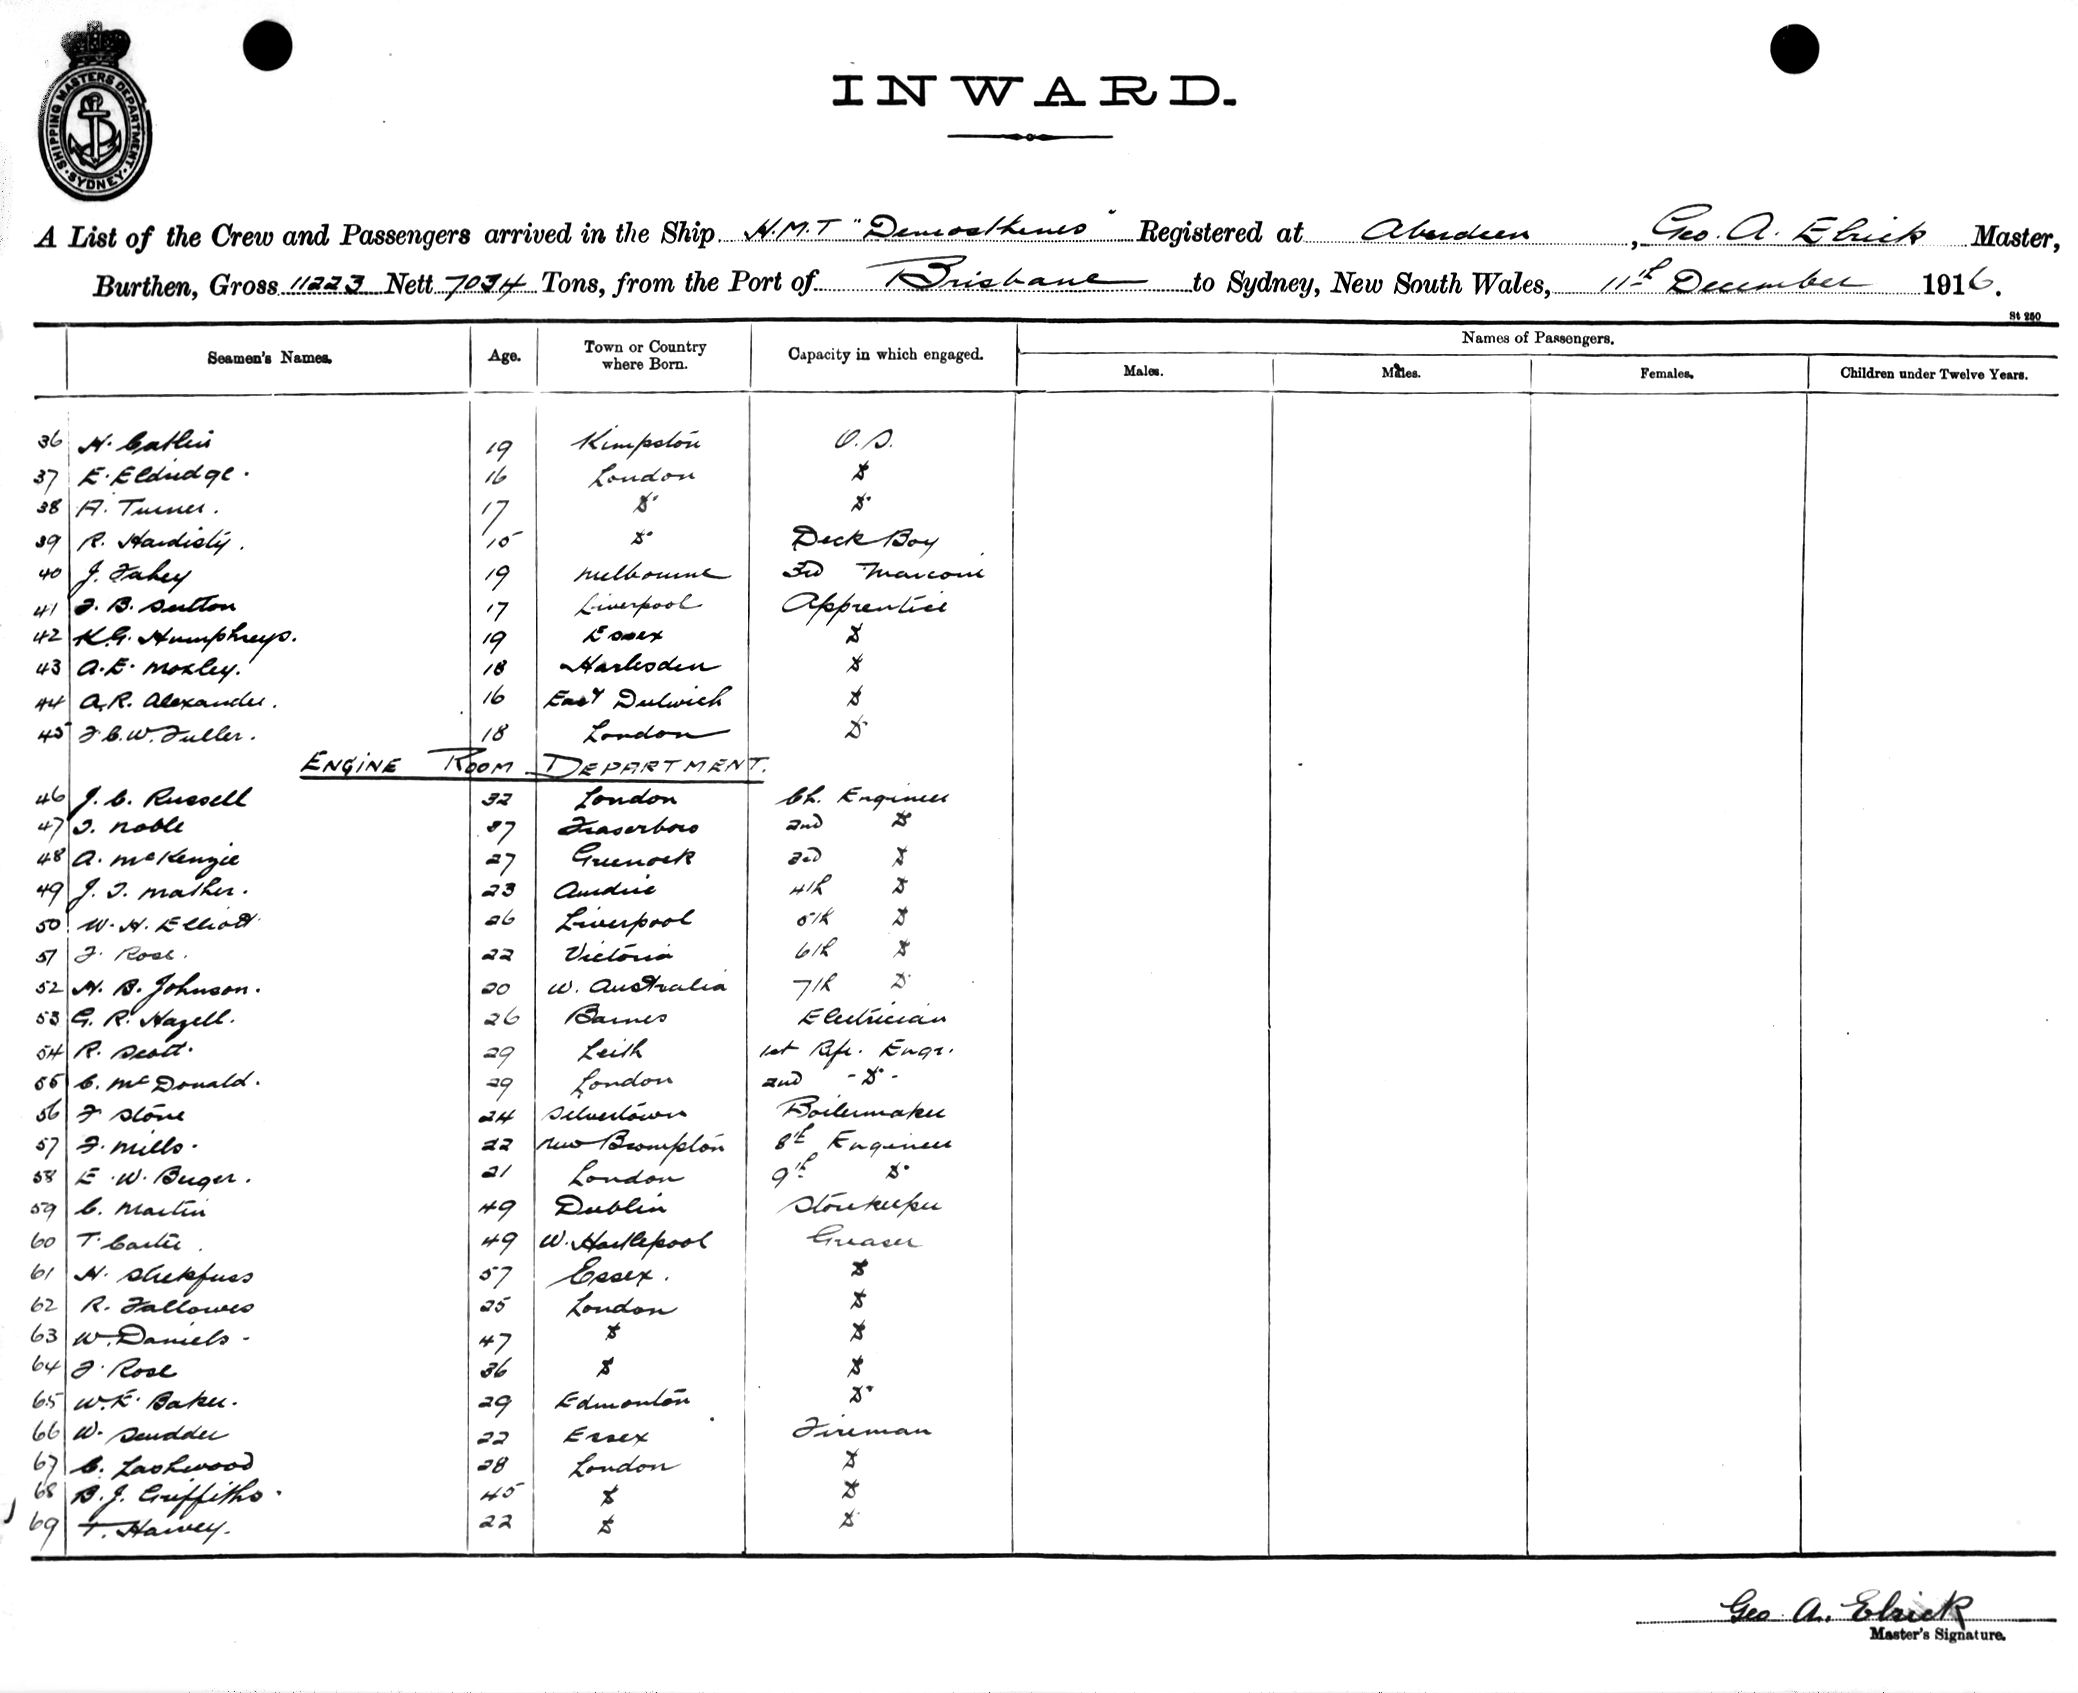 SHIPPING MASTERS DEPARTMENT
SYDNEY
INWARD.
A List of the Crew and Passengers arrived in the Ship H.M.T "Demosthenes" Registered at Aberdeen, Geo. A. Elrick Master,
Burthen, Gross 11223 Nett 7034 Tons, from the Port of Brisbane to Sydney, New South Wales, 11th December 1916.
St 250
Seamen's Names. Age. Town or Country where Born. Capacity in which engaged. Names of Passengers.
Males. Males. Females. Children under Twelve Years.
36 H. Catlin 19 Kimpston O.S.
37 E. Eldridge. 16 London Do
38 A. Turner. 17 Do Do
39 R. Hardisty. 15 Do Deck Boy
40 J. Fahey 19 Melbourne 3rd Marconi
41 F. B. Sutton 17 Liverpool Apprentice
42 K.G. Humphreys. 19 Essex Do
43 A.E. Moxley. 18 Harlesden Do
44 A.R. Alexander. 16 East Dulwich Do
45 F.C.W. Fuller. 18 London Do
ENGINE ROOM DEPARTMENT.
46 J. C. Russell 32 London Ch. Engineer
47 J. Noble 37 Fraserboro 2nd Do
48 A. McKenzie 27 Greenock 3rd Do
49 J. T. Mather. 23 Airdrie 4th Do
50 W. H. Elliott 26 Liverpool 5th Do
51 F. Rose. 22 Victoria 6th Do
52 H. B. Johnson. 20 W. Australia 7th Do
53 G. R. Hazell. 26 Barnes Electrician
54 R. Scott. 29 Leith 1st Rfr. Engr.
55 C. McDonald. 29 London 2nd - Do -
56 F Stone 24 Silvertown Boilermaker
57 F. Mills. 22 New Brompton 8th Engineer
58 E. W. Buger. 21 London 9th Do
59 C. Martin 49 Dublin Storekeeper
60 T. Carter. 49 W. Hartlepool Greaser
61 H. Stekfuss 57 Essex. Do
62 R. Fallowes 25 London Do
63 W. Daniels. 47 Do Do
64 F. Rose 36 Do Do
65 W.E. Baker. 29 Edmonton Do
66 W. Scudder 22 Essex Fireman
67 C. Lashwood 28 London Do
68 B.J. Griffiths. 45 Do Do
69 T. Harvey. 22 Do Do
Geo. A. Elrick
Master's Signature.